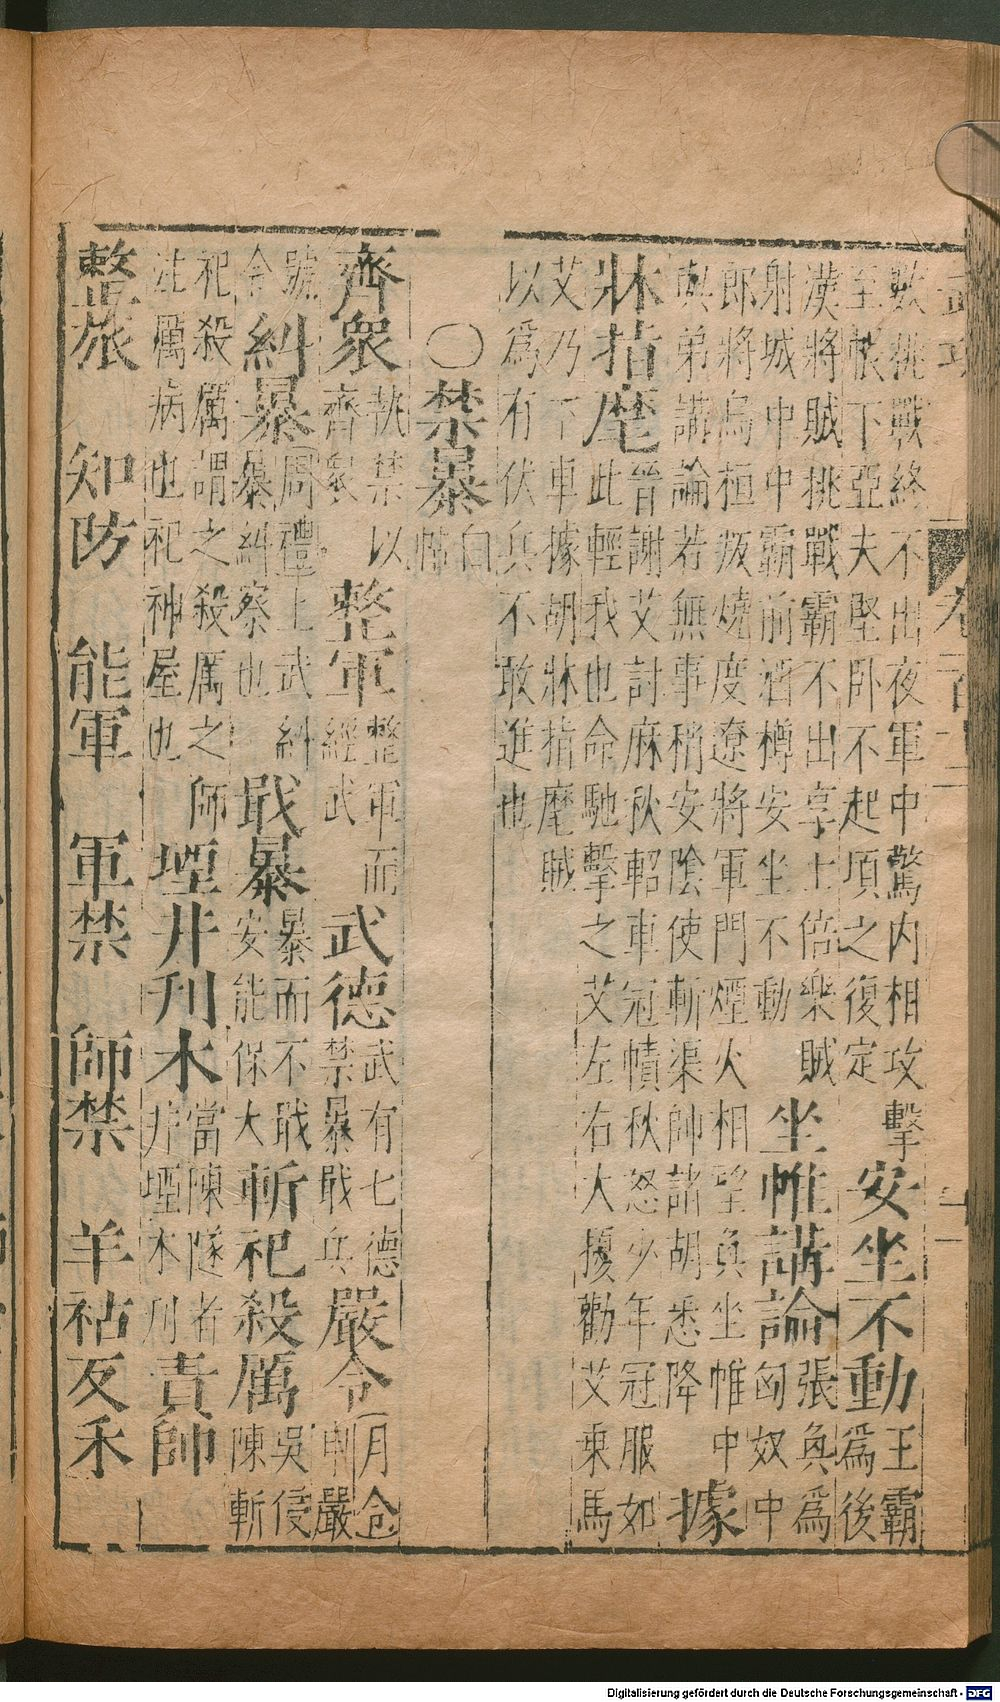 數挑戰終不出夜軍中驚内相攻擊
至帳下亞夫堅卧不起項之復定
安坐不動
王霸
爲後
漢將賊挑戰霸不出享士倍樂賊
射城中中霸前酒樽安坐不動
坐帷講論
張奐爲
匈奴中
郎將烏桓叛燒度遼將軍門煙火相望奐坐帷中
與弟講論若無事稍安陰使斬渠帥諸胡悉降
據
牀指麾
晉謝艾討麻秋軺車冠幘秋怒少年冠服如
此輕我也命馳擊之艾左右大擾勸艾乗馬
艾乃下車據胡牀指麾賊
以爲有伏兵不敢進也
○禁暴
白
帖
齊衆
執禁以
齊衆
整軍
整軍而
經武
武德
武有七德
禁暴戢兵
嚴令
月令
申嚴
號
令
糾暴
周禮上武糾
暴暴糾察也
戢暴
暴而不戢
安能保大
斬祀殺厲
吳侵
陳斬
祀殺厲謂之殺厲之師
注厲病也祀神屋也
堙井刊木
當陳隧者
井堙木刊
責師
整旅 知防 能軍 軍禁 師禁 羊祜反禾
Digitalisierung gefördert durch die Deutsche Forschungsgemeinschaft - DFG